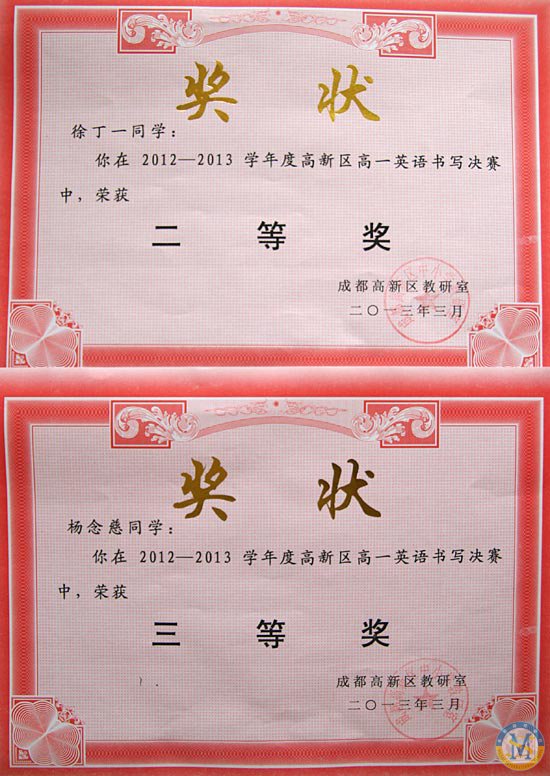 奖 状
徐丁一同学：
你在 2012—2013 学年度高新区高一英语书写决赛
中，荣获
二 等 奖
成都高新区教研室
二〇一三年三月
奖 状
杨念慈同学：
你在 2012—2013 学年度高新区高一英语书写决赛
中，荣获
三 等 奖
成都高新区教研室
二〇一三年三月